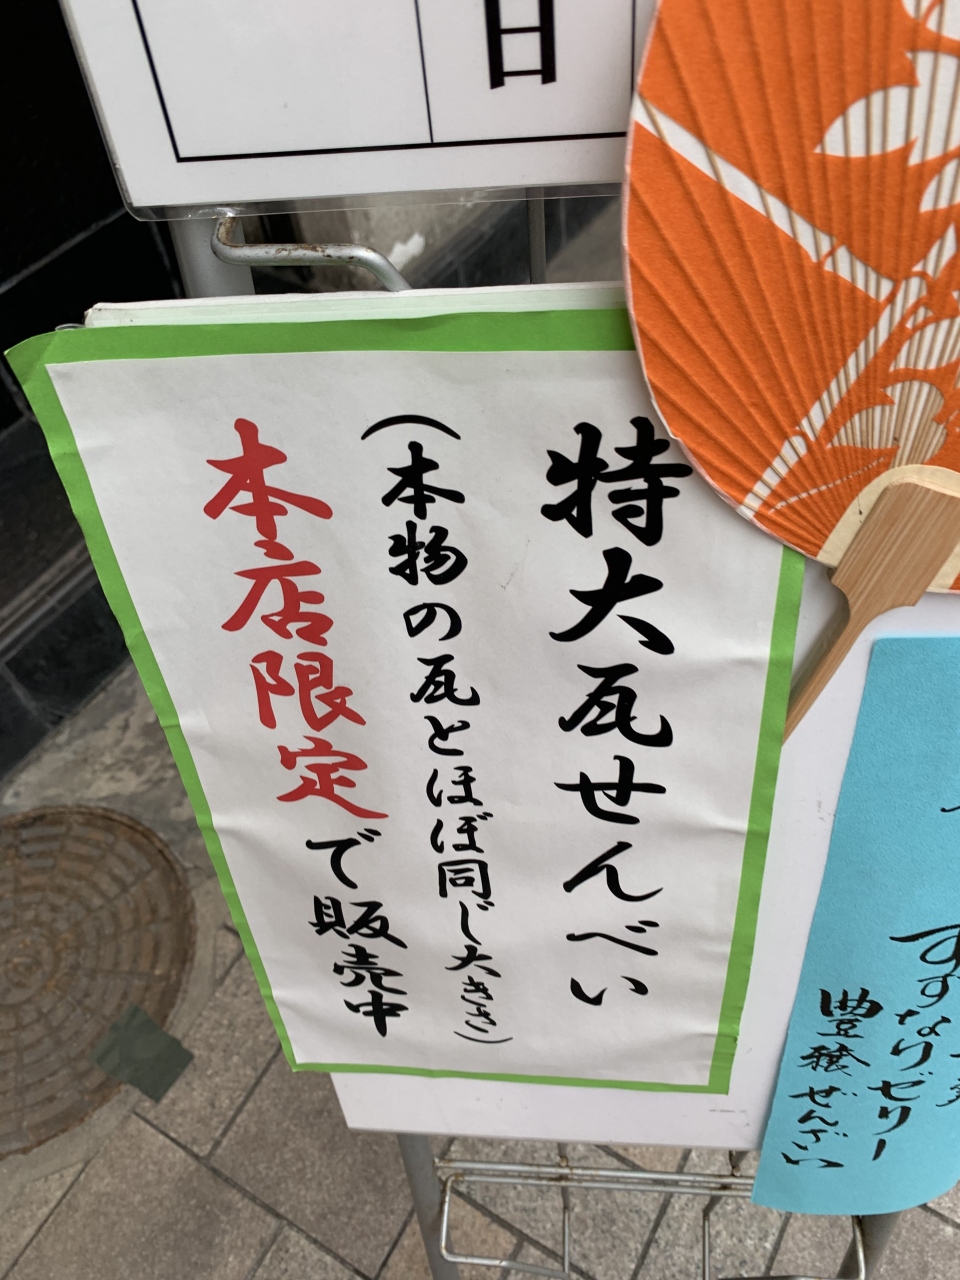 日
特大瓦せんべい
(本物の瓦とほぼ同じ大きさ)
本店限定で販売中
すずなりゼリー
豊穣ぜんざい